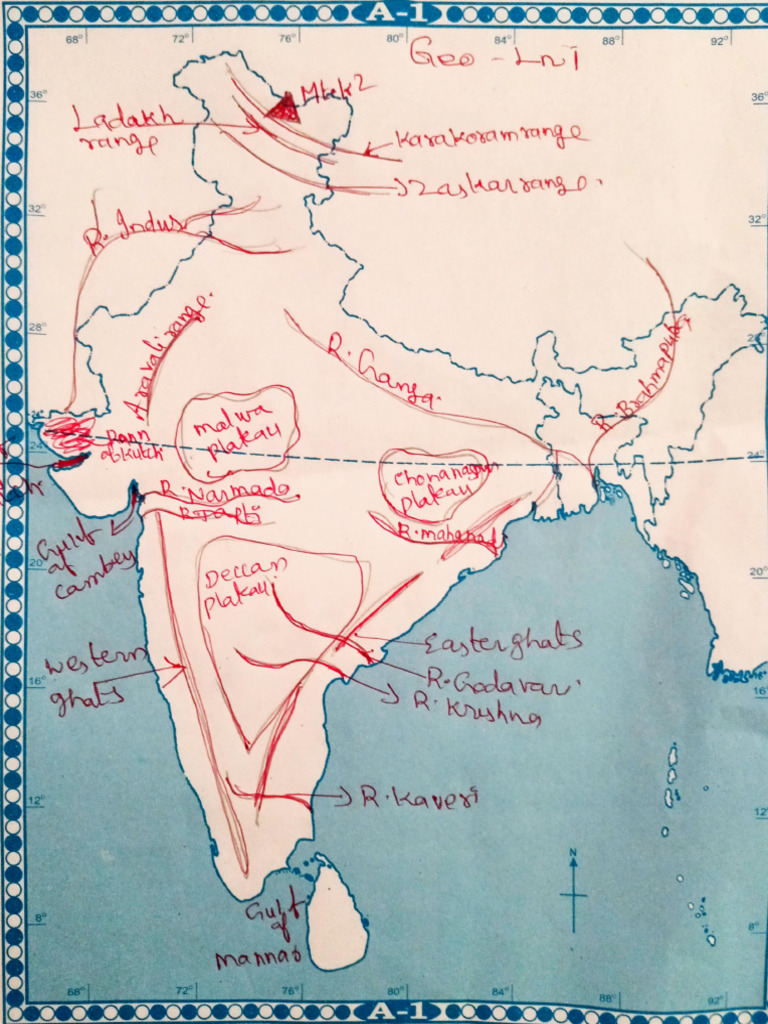 A-1
68° 72° 76° 80° 84° 88° 92°
Geo - Ln 1
36°
Mt k2
36°
Ladakh
range
Karakoram range
Zaskar range.
32°
32°
R. Indus
28°
28°
Aravali range.
R. Ganga
R. Brahmaputra
malwa
plakau
24°
Rann
of kutch
24°
chonanagpur
plakau
R. Narmada
R. Tapti
R. mahanadi
Gulf
of
Cambey
20°
20°
Deccan
plakau
Easter ghats
Western
ghats
R. Godavari
R. Krishna
16°
16°
12°
R. Kaveri
12°
N
Gulf
of
mannar
8°
8°
68° 72° 76° 80° 84° 88° 92°
A-1